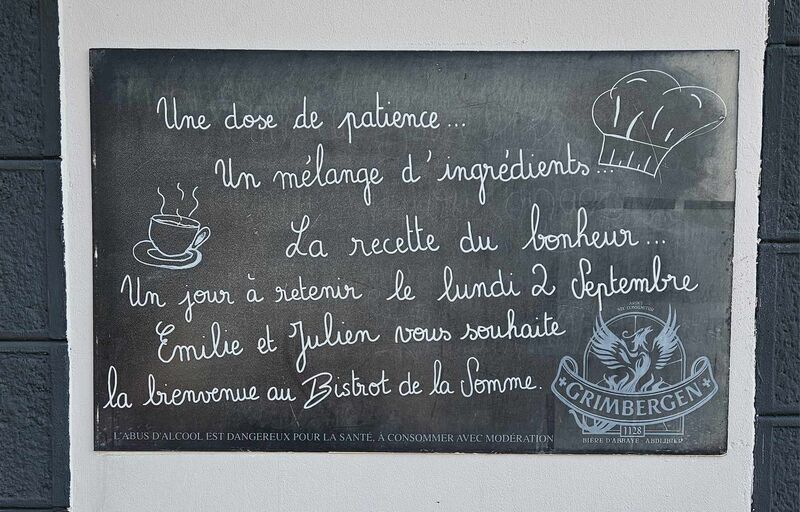 Une dose de patience...
Un mélange d'ingrédients...
La recette du bonheur...
Un jour à retenir le lundi 2 Septembre
Emilie et Julien vous souhaite
la bienvenue au Bistrot de la Somme.
L'ABUS D'ALCOOL EST DANGEREUX POUR LA SANTÉ, À CONSOMMER AVEC MODÉRATION
ARDET
NEC CONSUMITUR
GRIMBERGEN
1128
BIÈRE D'ABBAYE - ABDIJBIER